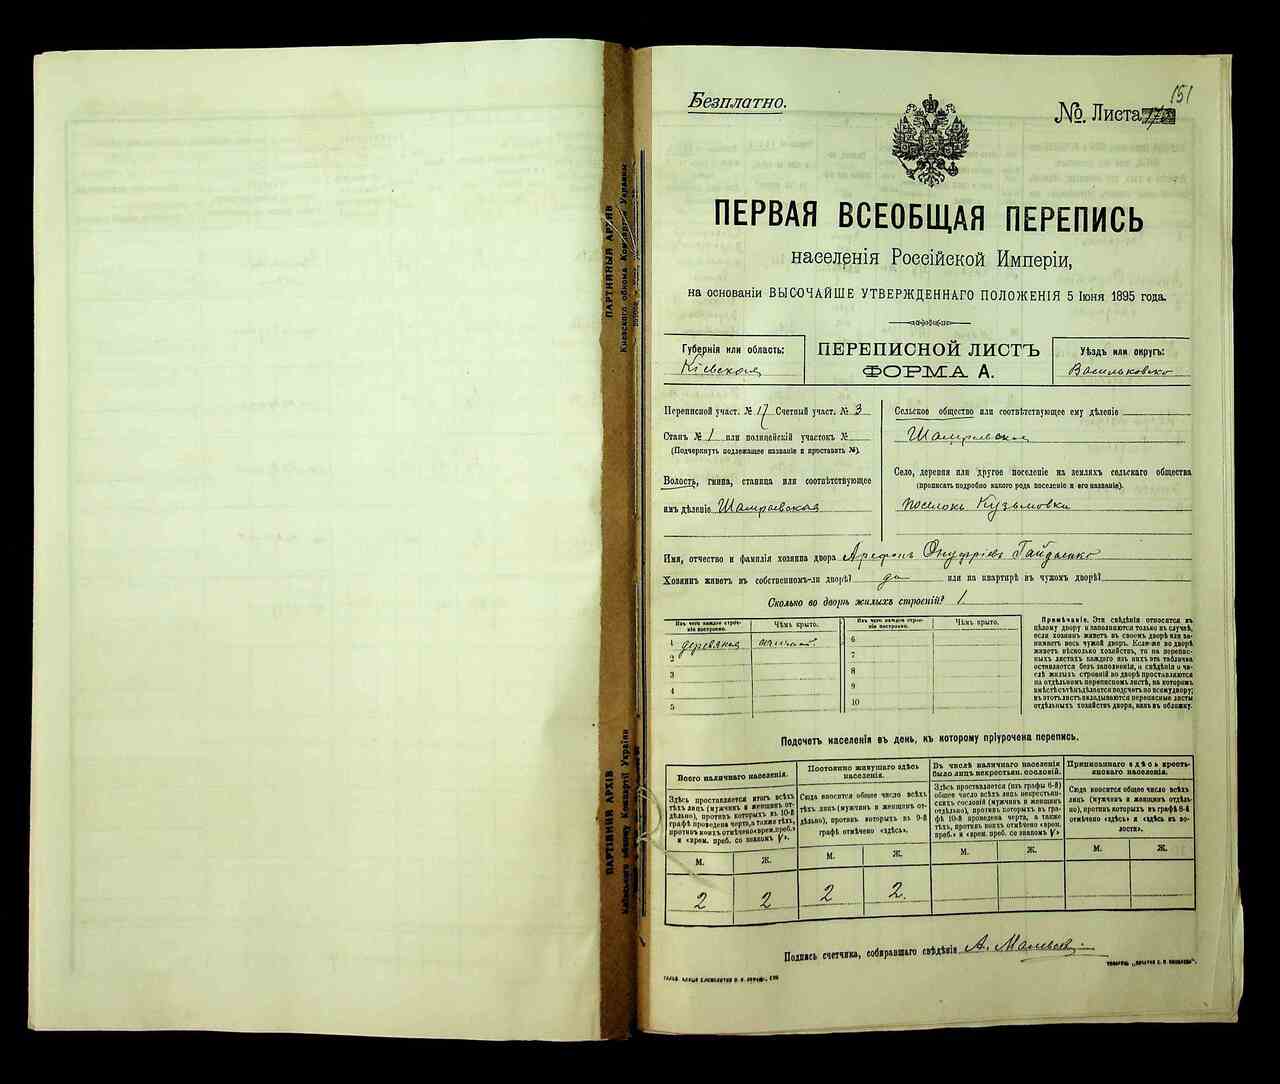 151
Безплатно.
№ Листа
ПЕРВАЯ ВСЕОБЩАЯ ПЕРЕПИСЬ
населенія Россійской Имперіи,
на основаніи ВЫСОЧАЙШЕ УТВЕРЖДЕННАГО ПОЛОЖЕНІЯ 5 Іюня 1895 года.
Губернія или область:
Кіевская
ПЕРЕПИСНОЙ ЛИСТЪ
ФОРМА А.
Уѣздъ или округъ:
Васильковско
Переписной участ. № 17 Счетный участ. № 3
Станъ № 1 или полицейскій участокъ №
(Подчеркнуть подлежащее названіе и проставить №).
Волость, гмина, станица или соотвѣтствующее
имъ дѣленіе Шамраевская
Сельское общество или соотвѣтствующее ему дѣленіе
Шамраевская
Село, деревня или другое поселеніе на земляхъ сельскаго общества
(прописать подробно какого рода поселеніе и его названіе).
поселокъ Кузьмовка
Имя, отчество и фамилія хозяина двора Арефонъ Онуфріевъ Гайденко
Хозяинъ живетъ въ собственномъ-ли дворѣ? да или на квартирѣ въ чужомъ дворѣ?
Сколько во дворѣ жилыхъ строеній? 1
Изъ чего каждое строе-
ніе построено.
Чѣмъ крыто.
Изъ чего каждое строе-
ніе построено.
Чѣмъ крыто.
1 деревяная
2
3
4
5
6
7
8
9
10
Примѣчаніе. Эти свѣдѣнія относятся къ
цѣлому двору и заполняются только въ случаѣ,
если хозяинъ живетъ въ своемъ дворѣ или за-
нимаетъ весь чужой дворъ. Если-же во дворѣ
живетъ нѣсколько хозяйствъ, то на перепис-
ныхъ листахъ каждаго изъ нихъ эта табличка
оставляется безъ заполненія, а свѣдѣнія о чи-
слѣ жилыхъ строеній во дворѣ проставляются
на отдѣльномъ переписномъ листѣ, на которомъ
вмѣстѣ съ тѣмъ дѣлается подсчетъ по всему двору;
въ этотъ листъ вкладываются переписные листы
отдѣльныхъ хозяйствъ двора, какъ въ обложку.
Подсчетъ населенія въ день, къ которому пріурочена перепись.
Всего наличнаго населенія.
Здѣсь проставляется итогъ всѣхъ
тѣхъ лицъ (мужчинъ и женщинъ от-
дѣльно), противъ которыхъ въ 10-й
графѣ проведена черта, а также тѣхъ,
противъ коихъ отмѣчено «врем. преб.»
и «врем. преб. со знакомъ V».
Постоянно живущаго здѣсь
населенія.
Сюда вносится общее число всѣхъ
тѣхъ лицъ (мужчинъ и женщинъ от-
дѣльно), противъ которыхъ въ 9-й
графѣ отмѣчено «здѣсь».
Въ числѣ наличнаго населенія
было лицъ некрестьян. сословій.
Здѣсь проставляется (изъ графы 6-й)
общее число всѣхъ лицъ некрестьян-
скихъ сословій (мужчинъ и женщинъ
отдѣльно), противъ которыхъ въ гра-
фѣ 10-й проведена черта, а также
тѣхъ, противъ коихъ отмѣчено «врем.
преб.» и «врем. преб. со знакомъ V»
Приписаннаго здѣсь кресть-
янскаго населенія.
Сюда вносятъ общее число всѣхъ
лицъ (мужчинъ и женщинъ отдѣль-
но), противъ которыхъ въ графѣ 8-й
отмѣчено «здѣсь» и «здѣсь въ во-
лости».
М. Ж. М. Ж. М. Ж. М. Ж.
2 2 2 2.
Подпись счетчика, собиравшаго свѣдѣнія А.
ПАРТИЙНЫЙ АРХИВ
Киевского обкома Компартии Украины
ПАРТІЙНИЙ АРХІВ
Київського обкому Компартії України